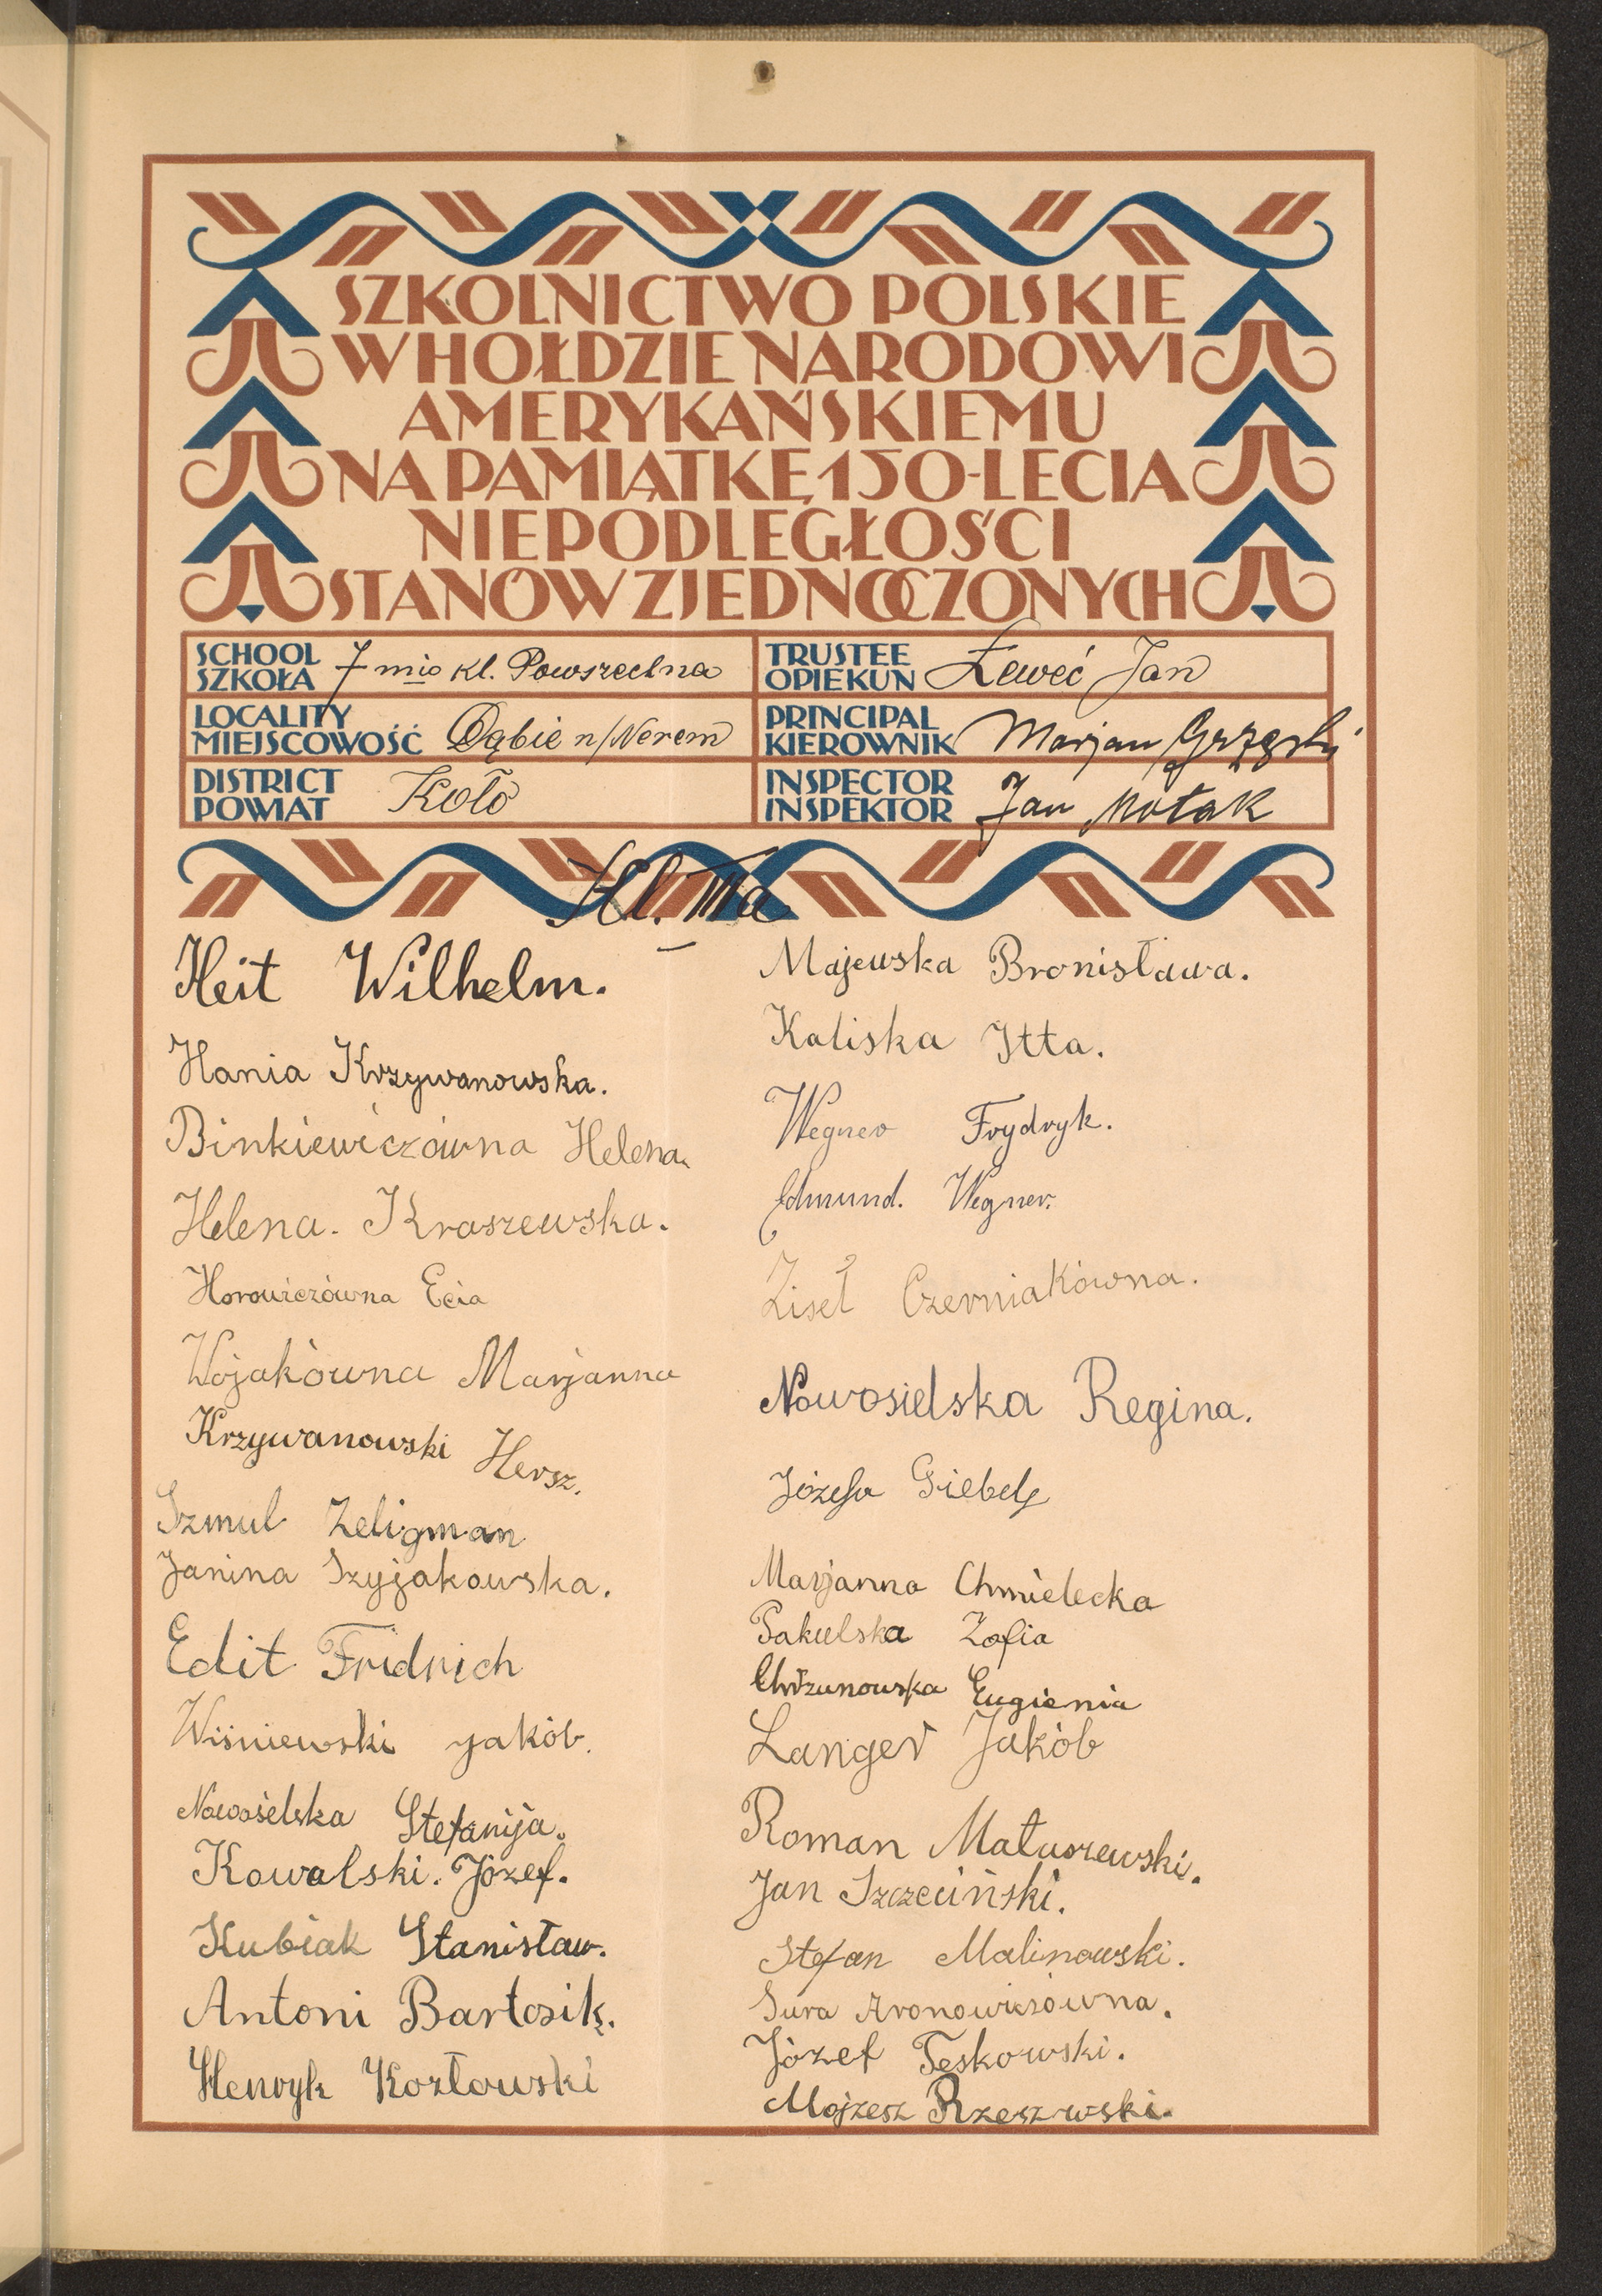 SZKOLNICTWO POLSKIE
W HOŁDZIE NARODOWI
AMERYKAŃSKIEMU
NA PAMIĄTKĘ 150-LECIA
NIEPODLEGŁOŚCI
STANÓW ZJEDNOCZONYCH
SCHOOL
SZKOŁA 7 mio kl. Powszechna
LOCALITY
MIEJSCOWOŚĆ Dąbie n/Nerem
DISTRICT
POWIAT Koło
TRUSTEE
OPIEKUN Jan
PRINCIPAL
KIEROWNIK Marjan
INSPECTOR
INSPEKTOR Jan Motak
Kl. IIIa
Heit Wilhelm.
Hania Krzywanowska.
Binkiewiczówna Helena.
Helena. Kraszewska.
Horowiczówna Ecia
Wojakówna Marjanna
Krzywanowski Hersz.
Szmul Zeligman
Janina Szyjakowska.
Edit Fridrich
Wiśniewski Jakób.
Nowosielska Stefanija.
Kowalski. Józef.
Kubiak Stanisław.
Antoni Bartosik.
Henryk Kozłowski
Majewska Bronisława.
Kaliska Itta.
Wegner Frydryk.
Edmund. Wegner.
Czerniakówna.
Nowosielska Regina.
Józefa
Marjanna Chmielecka
Pakulska Zofia
Chrzanowska Eugienia
Langer Jakób
Roman Matuszewski.
Jan Szczeciński.
Stefan Malinowski.
Sura Aronowiczówna.
Józef Teskowski.
Mojzesz Rzeszewski.